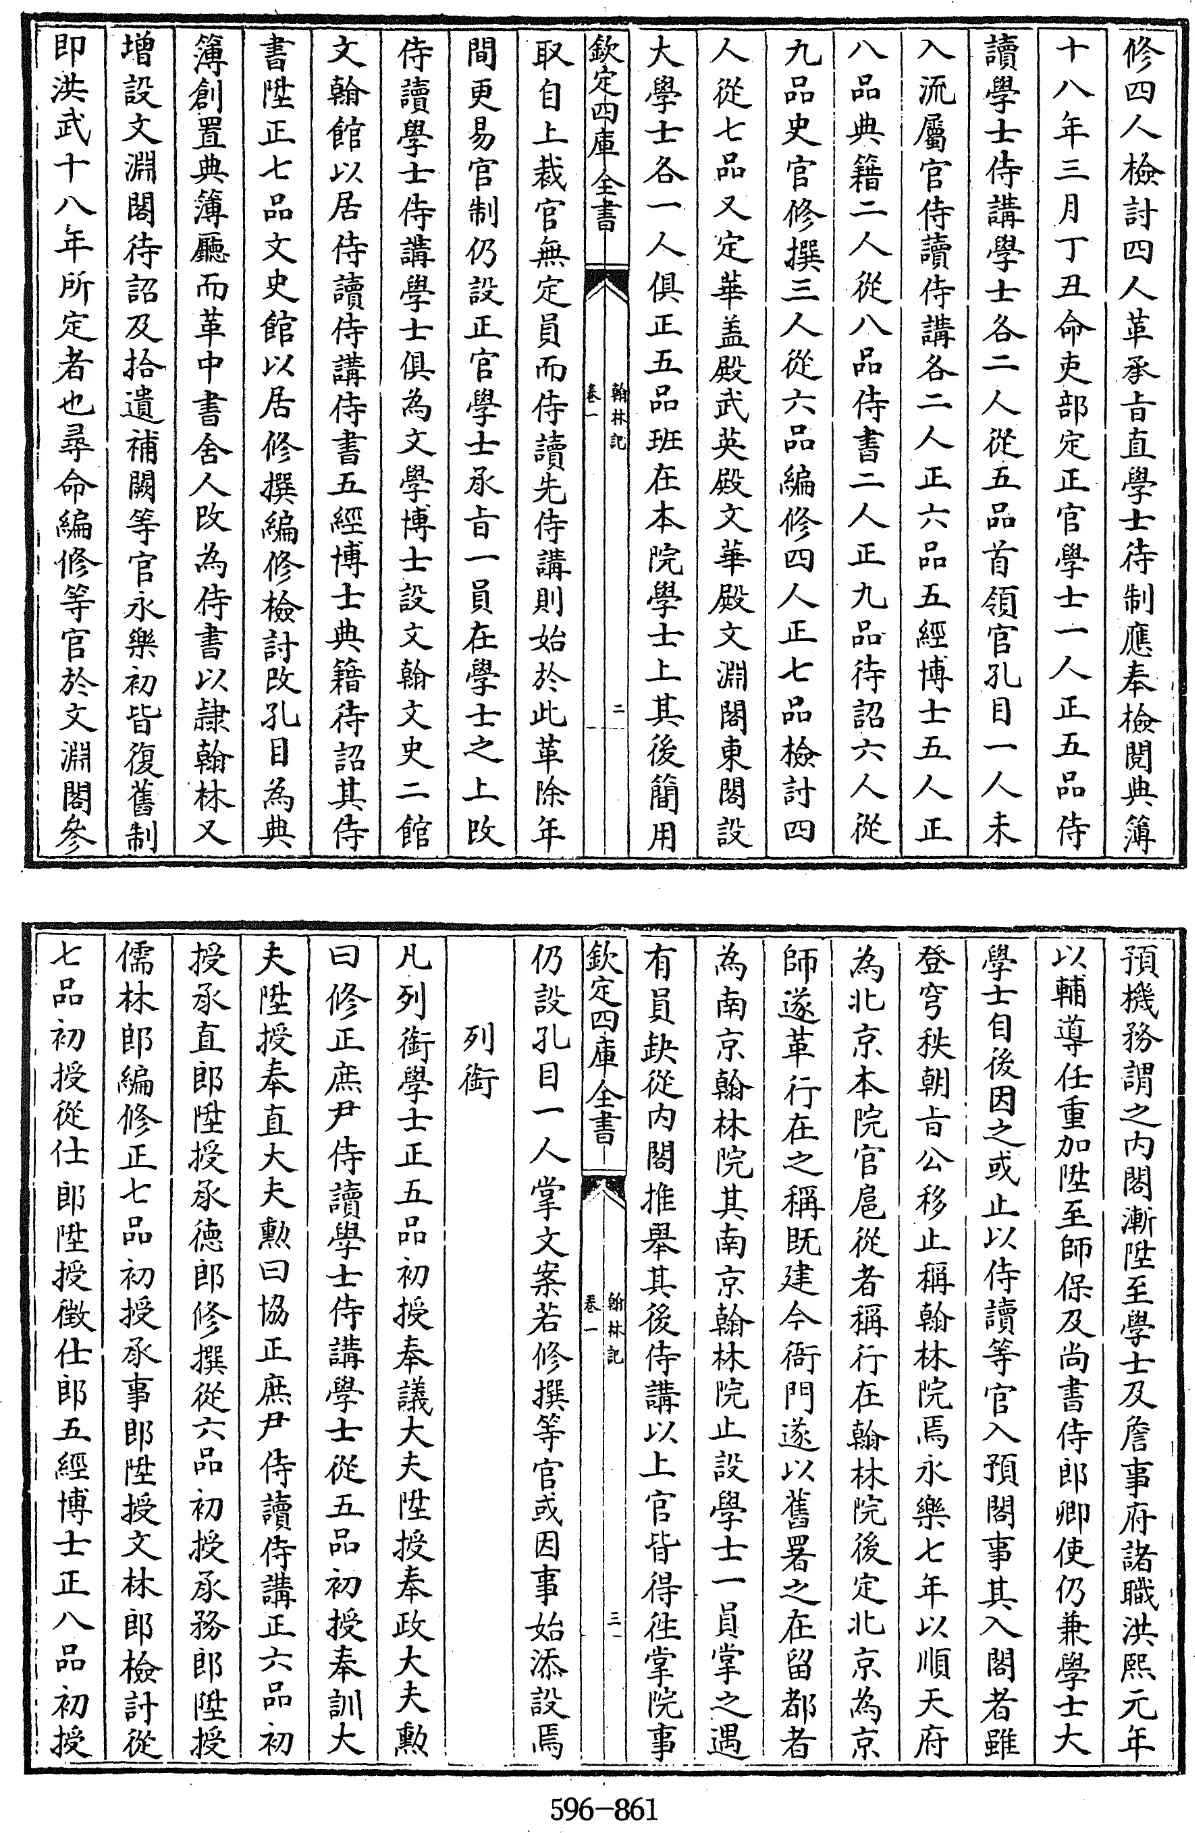 修四人檢討四人革承旨直學士待制應奉檢閱典簿
十八年三月丁丑命吏部定正官學士一人正五品侍
讀學士侍講學士各二人從五品首領官孔目一人未
入流屬官侍讀侍講各二人正六品五經博士五人正
八品典籍二人從八品侍書二人正九品待詔六人從
九品史官修撰三人從六品編修四人正七品檢討四
人從七品又定華盖殿武英殿文華殿文淵閣東閣設
大學士各一人俱正五品班在本院學士上其後簡用
欽定四庫全書
翰林記
卷一
二
取自上裁官無定員而侍讀先侍講則始於此革除年
間更易官制仍設正官學士承旨一員在學士之上改
侍讀學士侍講學士俱為文學博士設文翰文史二館
文翰館以居侍讀侍講侍書五經博士典籍待詔其侍
書陞正七品文史館以居修撰編修檢討改孔目為典
簿創置典簿廳而革中書舍人改為侍書以隷翰林又
增設文淵閣待詔及拾遺補闕等官永樂初皆復舊制
即洪武十八年所定者也尋命編修等官於文淵閣參
預機務謂之内閣漸陞至學士及詹事府諸職洪熙元年
以輔導任重加陞至師保及尚書侍郎卿使仍兼學士大
學士自後因之或止以侍讀等官入預閣事其入閣者雖
登穹秩朝旨公移止稱翰林院焉永樂七年以順天府
為北京本院官扈從者稱行在翰林院後定北京為京
師遂革行在之稱既建今衙門遂以舊署之在留都者
為南京翰林院其南京翰林院止設學士一員掌之遇
有員缺從内閣推舉其後侍講以上官皆得徃掌院事
欽定四庫全書
翰林記
卷一
三
仍設孔目一人掌文案若修撰等官或因事始添設焉
列銜
凡列銜學士正五品初授奉議大夫陞授奉政大夫勲
曰修正庶尹侍讀學士侍講學士從五品初授奉訓大
夫陞授奉直大夫勲曰協正庶尹侍讀侍講正六品初
授承直郎陞授承德郎修撰從六品初授承務郎陞授
儒林郎編修正七品初授承事郎陞授文林郎檢討從
七品初授從仕郎陞授徵仕郎五經博士正八品初授
596-861